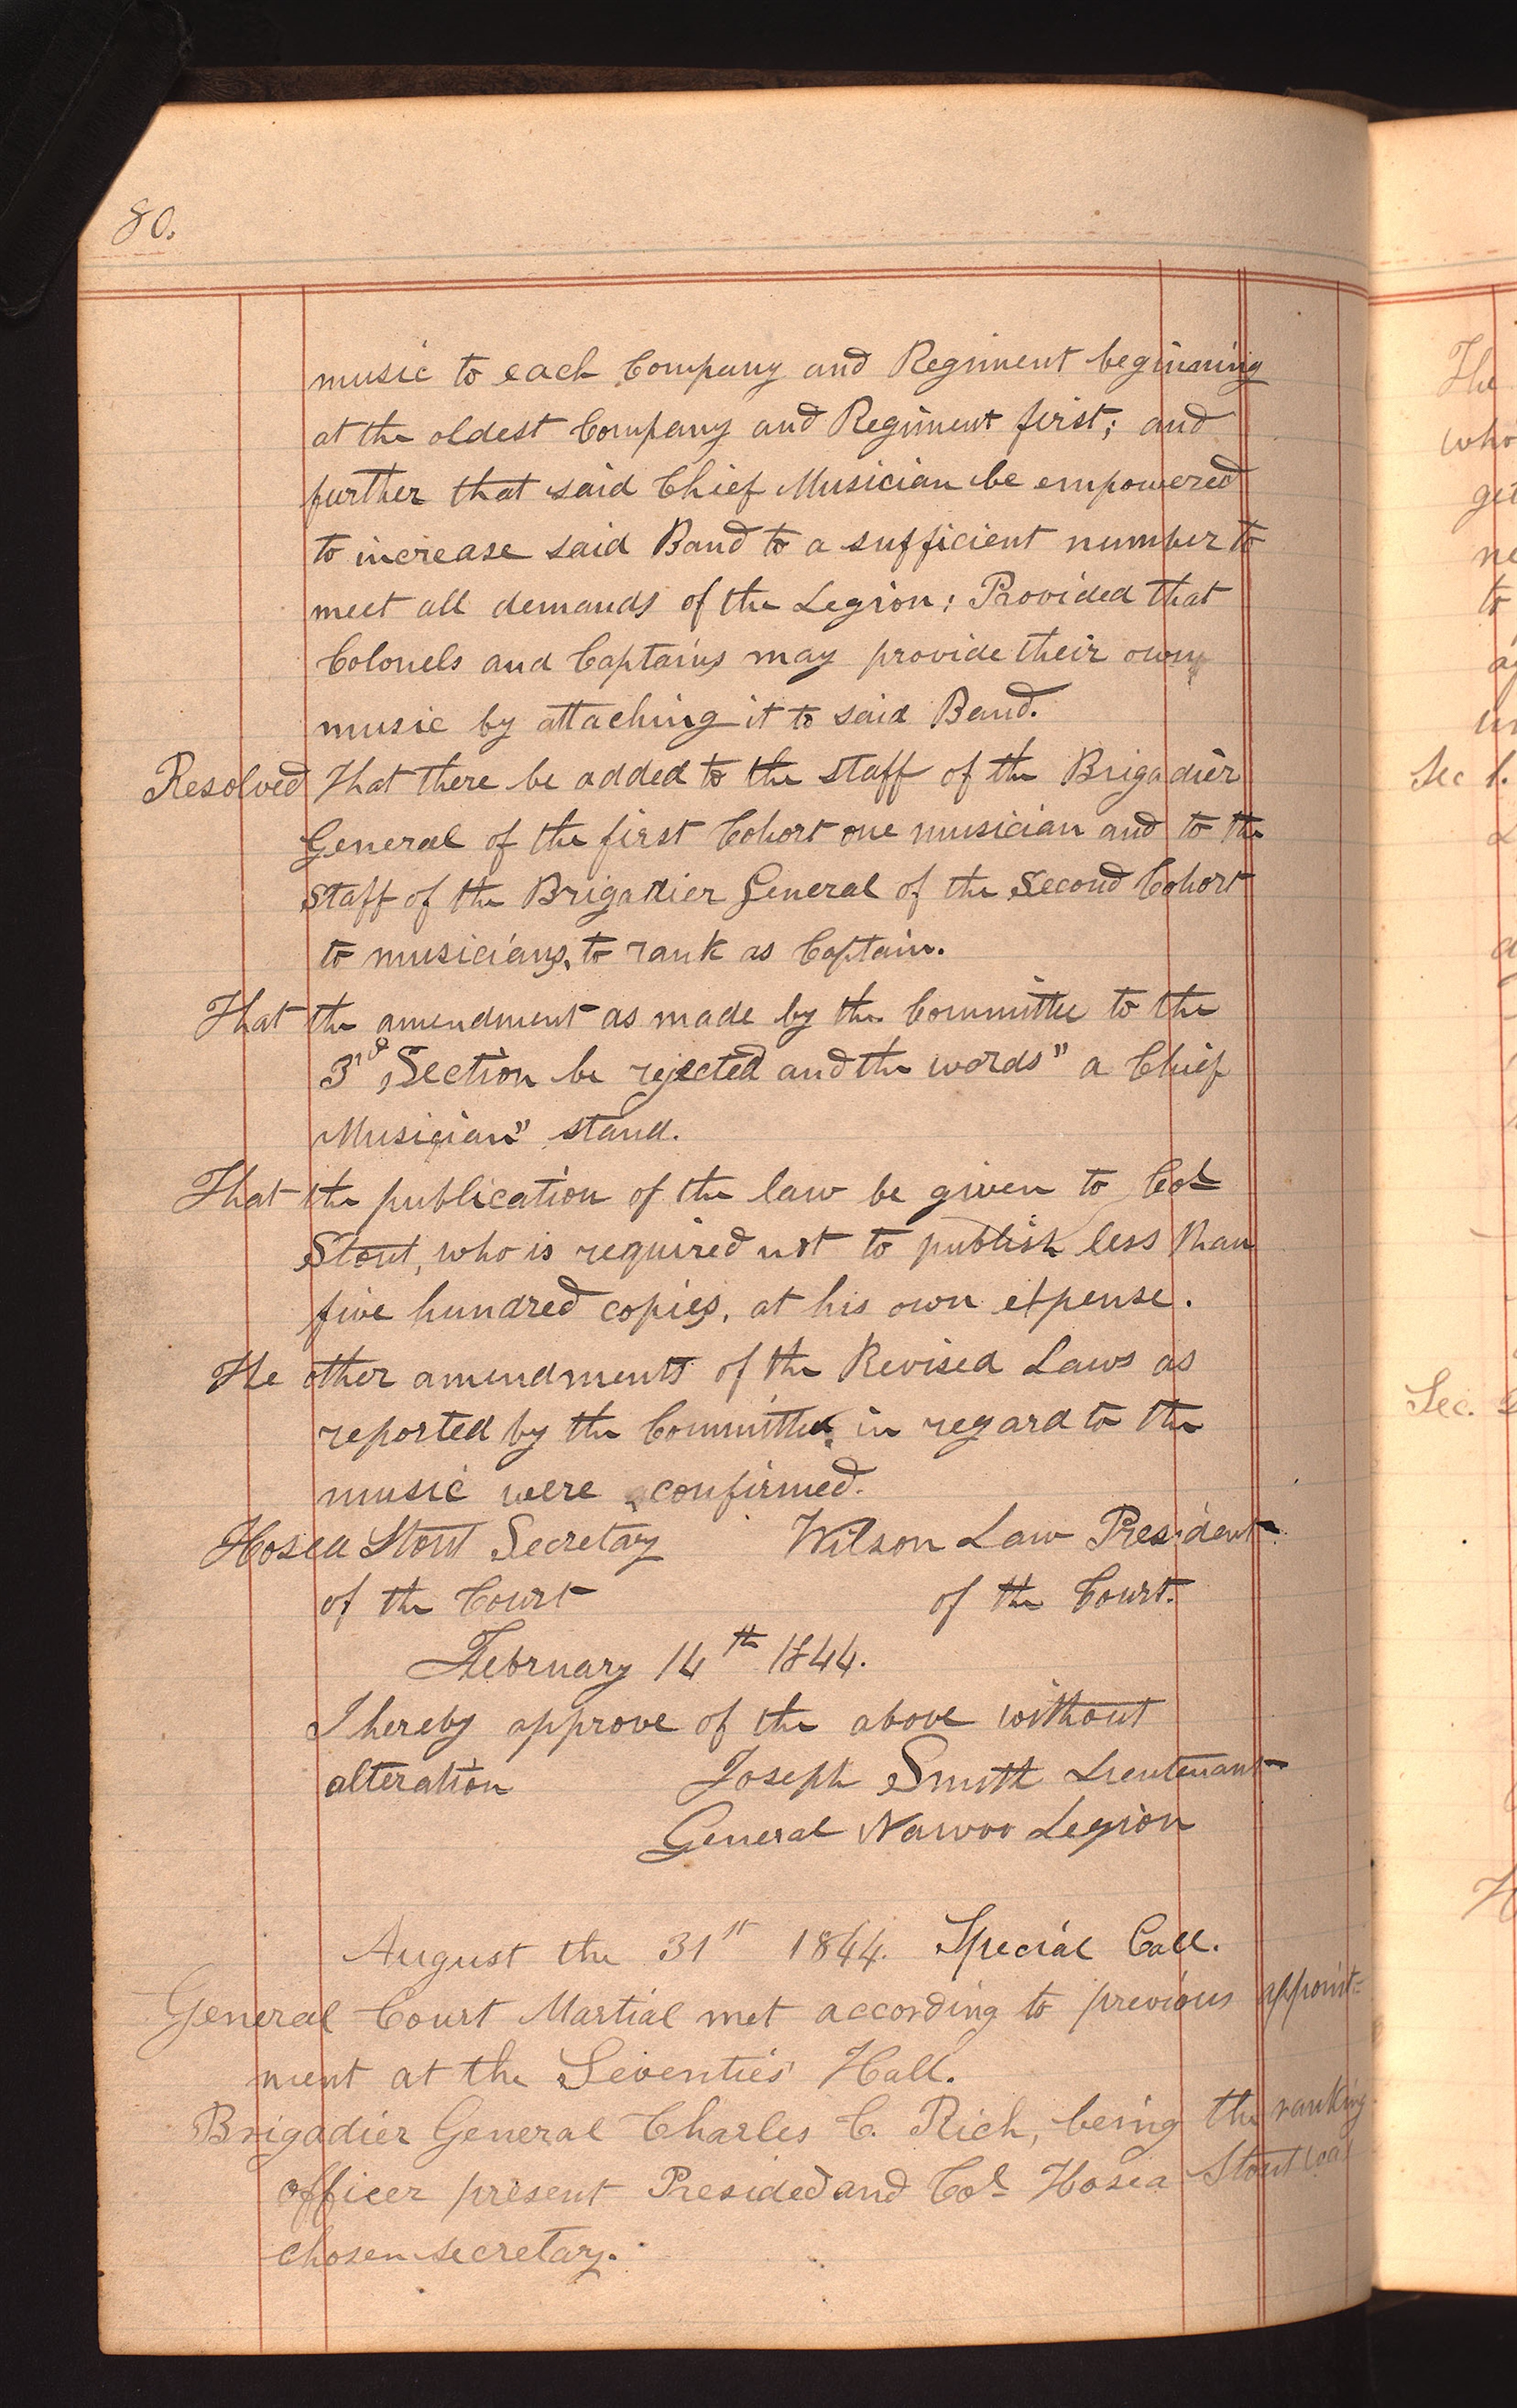 80.
music to each Company and Regiment beginning
at the oldest Company and Regiment first; and
further that said Chief Musician be empowered
to increase said Band to a sufficient number to
meet all demands of the Legion; Provided that
Colonels and Captains may provide their own
music by attaching it to said Band.
Resolved That there be added to the staff of the Brigadier
General of the first Cohort one musician and to the
Staff of the Brigadier General of the Second Cohort
to musicians, to rank as Captain.
That the amendment as made by the Committee to the
3rd Section be rejected and the words "a Chief
Musician" stand.
That the publication of the law be given to Col
Stout, who is required not to publish less than
five hundred copies, at his own expense.
The other amendments of the Revised Laws as
reported by the Committee in regard to the
music were confirmed.
Hosea Stout Secretary Wilson Law President
of the Court of the Court.
February 14th 1844.
I hereby approve of the above without
alteration Joseph Smith Lieutenant
General Nauvoo Legion
August the 31st 1844. Special Call.
General Court Martial met according to previous appoint=
ment at the Seventies Hall.
Brigadier General Charles C. Rich, being the ranking
officer present Presided and Col Hosea Stout was
chosen secretary.
The
who
to
Sec 1.
Sec.